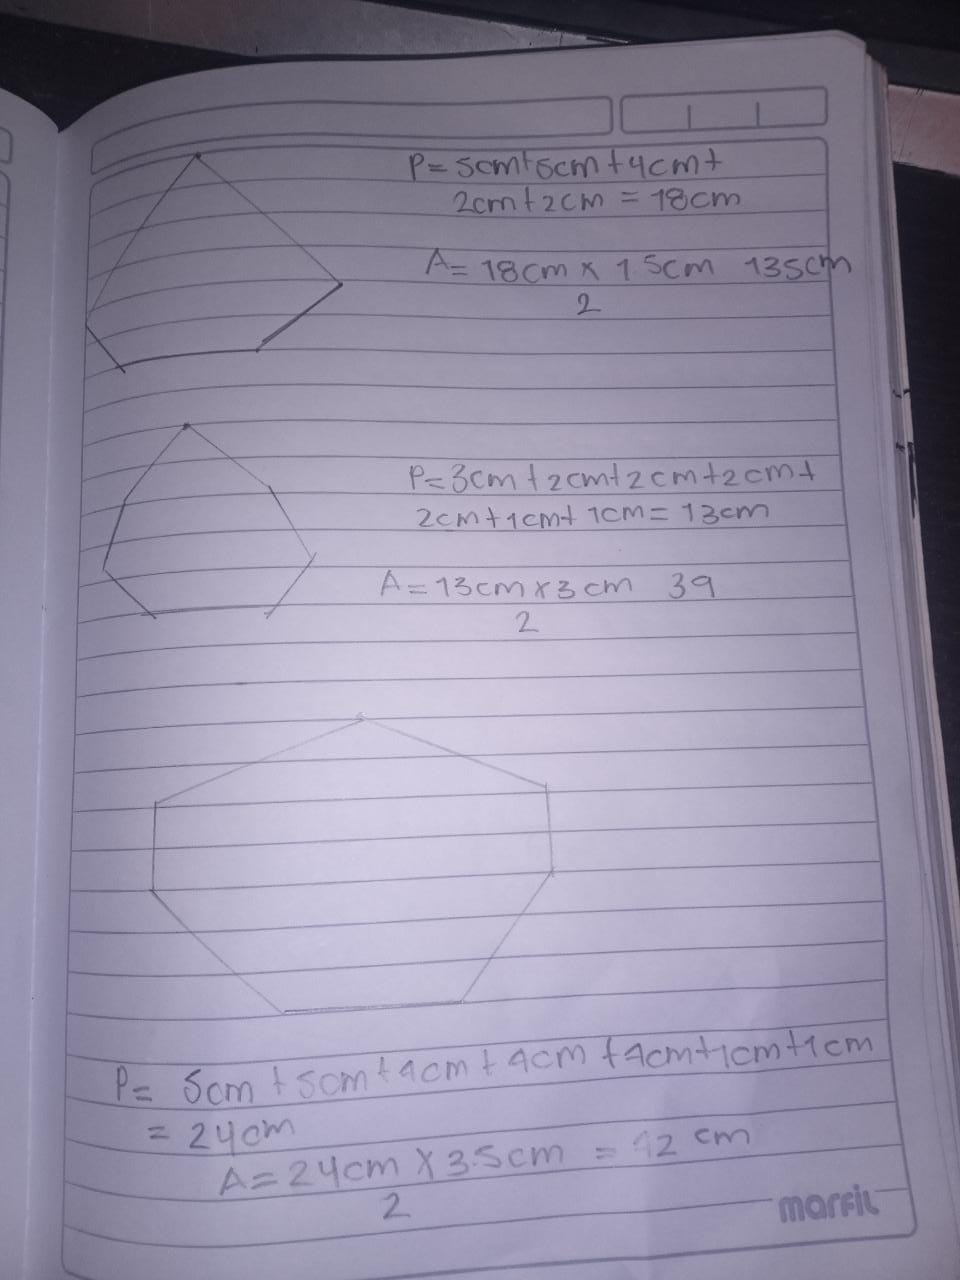 P= 5cm+5cm+4cm+
2cm+2cm = 18cm
A= 18cm x 1.5cm 135cm
2
P=3cm+2cm+2cm+2cm+
2cm+1cm+1cm=13cm
A=13cm x 3cm 39
2
P= 5cm+5cm+4cm+4cm+4cm+1cm+1cm
= 24cm
A=24cm x 3.5cm = 42 cm
2
marfil